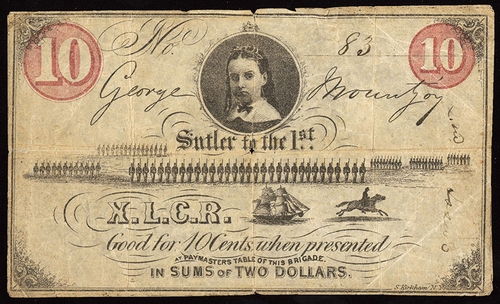 10 No. 83 10
George Mountjoy
Sutler to the 1st.
X.L.C.R.
Good for 10 Cents, when presented
AT PAYMASTERS TABLE OF THIS BRIGADE,
IN SUMS OF TWO DOLLARS.